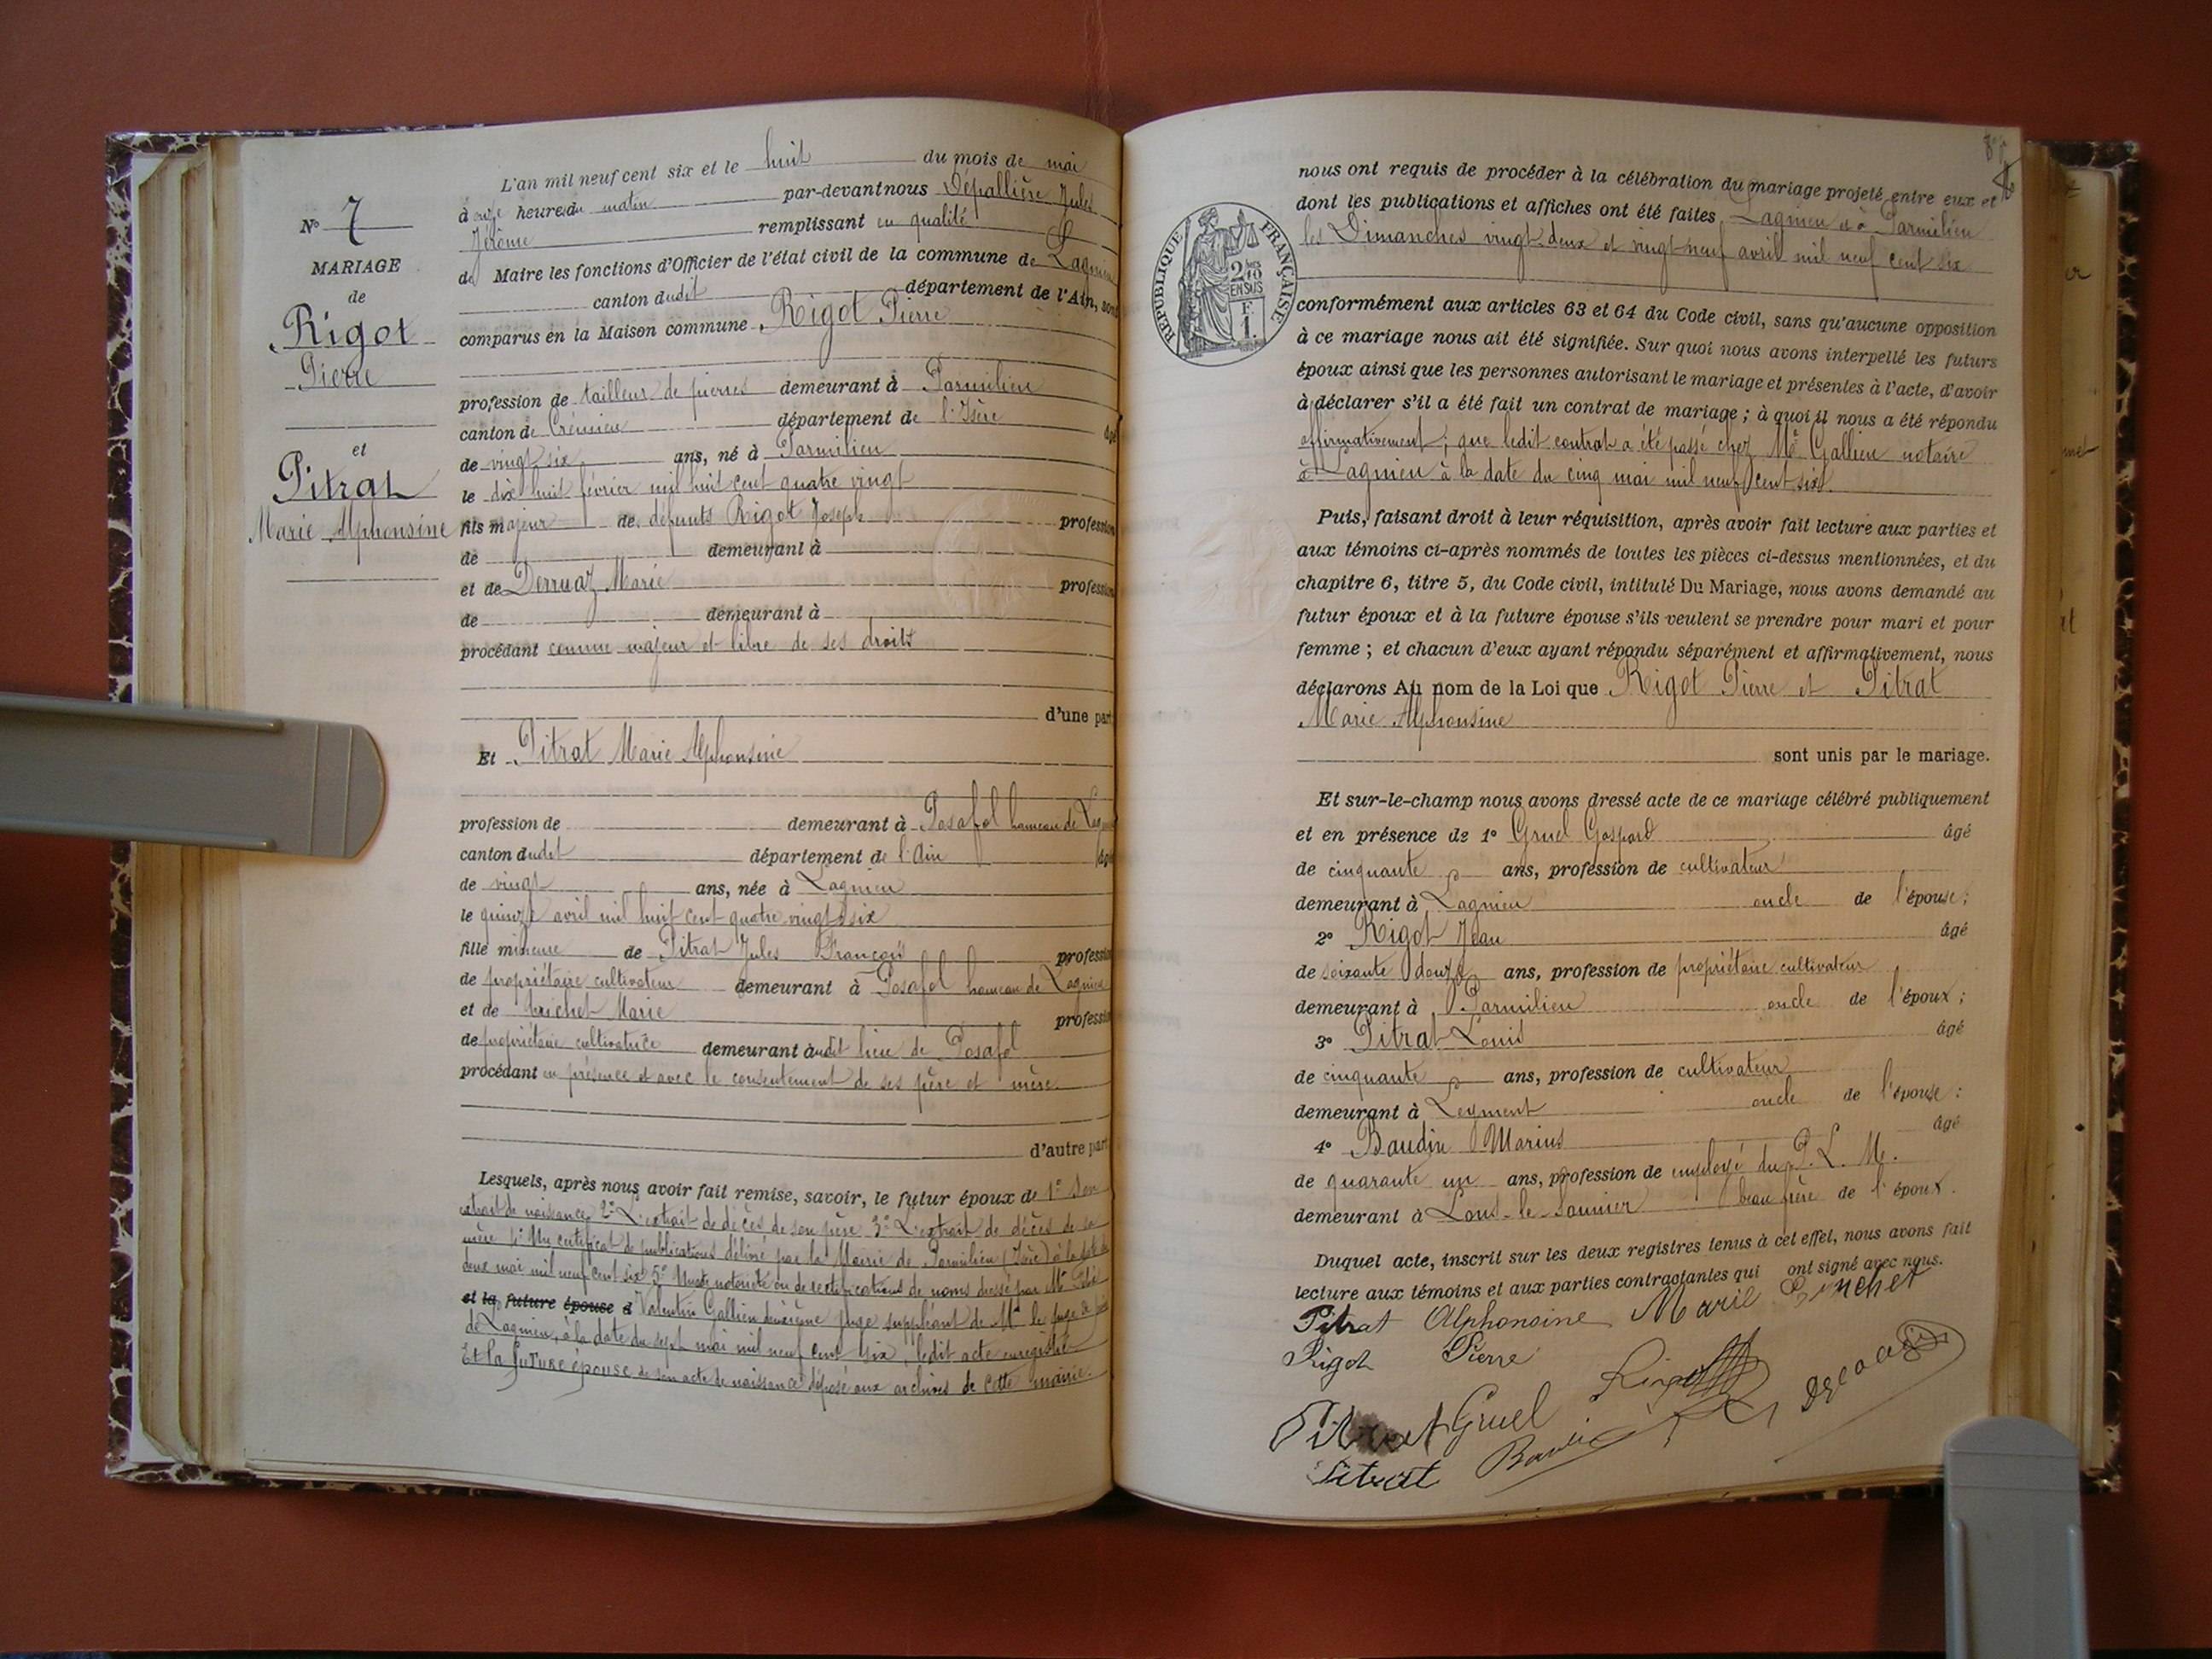 N° 7
MARIAGE
de
Rigot
Pierre
et
Pitrat
Marie Alphonsine
L'an mil neuf cent six et le huit du mois de mai
à onze heures du matin par-devant nous Dépallière Jules
Jérôme remplissant en qualité
de Maire les fonctions d'Officier de l'état civil de la commune de Lagnieu
canton dudit département de l'Ain, sont
comparus en la Maison commune Rigot Pierre
profession de tailleur de pierres demeurant à Parmilieu
canton de Crémieu département de l'Isère âgé
de vingt six ans, né à Parmilieu
le dix huit février mil huit cent quatre vingt
fils majeur de défunts Rigot Joseph profession
de demeurant à
et de Derruaz Marie profession
de demeurant à
procédant comme majeur et libre de ses droits
d'une part
Et Pitrat Marie Alphonsine
profession de demeurant à Posafol hameau de Lagnieu
canton dudit département de l'Ain âgé
de vingt ans, née à Lagnieu
le quinze avril mil huit cent quatre vingt six
fille mineure de Pitrat Jules François profession
de propriétaire cultivateur demeurant à Posafol hameau de Lagnieu
et de Marie profession
de propriétaire cultivatrice demeurant àudit lieu de Posafol
procédant en présence et avec le consentement de ses père et mère
d'autre part
Lesquels, après nous avoir fait remise, savoir, le futur époux de 1° son
extrait de naissance 2° L'extrait de décès de son père 3° L'extrait de décès de sa
mère 4° Un certificat de publications délivré par la Mairie de Parmilieu (Isère) à la date du
deux mai mil neuf cent six 5° Un acte notoriété ou de rectifications de noms dressé par Mr
et la future épouse d Valentin Gallien deuxième juge suppléant de Mr le juge de paix
de Lagnieu, à la date du sept mai mil neuf cent six, ledit acte enregistré
Et la future épouse de son acte de naissance déposé aux archives de cette mairie.
nous ont requis de procéder à la célébration du mariage projeté entre eux et
dont les publications et affiches ont été faites Lagnieu et à Parmilieu
les Dimanches vingt deux et vingt neuf avril mil neuf cent six
RÉPUBLIQUE FRANÇAISE
2/10
EN SUS
F.
1.
conformément aux articles 63 et 64 du Code civil, sans qu'aucune opposition
à ce mariage nous ait été signifiée. Sur quoi nous avons interpellé les futurs
époux ainsi que les personnes autorisant le mariage et présentes à l'acte, d'avoir
à déclarer s'il a été fait un contrat de mariage ; à quoi il nous a été répondu
affirmativement ; que ledit contrat a été passé chez Me Gallien notaire
à Lagnieu à la date du cinq mai mil neuf cent six.
Puis, faisant droit à leur réquisition, après avoir fait lecture aux parties et
aux témoins ci-après nommés de toutes les pièces ci-dessus mentionnées, et du
chapitre 6, titre 5, du Code civil, intitulé Du Mariage, nous avons demandé au
futur époux et à la future épouse s'ils veulent se prendre pour mari et pour
femme ; et chacun d'eux ayant répondu séparément et affirmativement, nous
déclarons Au nom de la Loi que Rigot Pierre et Pitrat
Marie Alphonsine
sont unis par le mariage.
Et sur-le-champ nous avons dressé acte de ce mariage célébré publiquement
et en présence de 1° Gruel Gaspard âgé
de cinquante ans, profession de cultivateur
demeurant à Lagnieu oncle de l'épouse ;
2° Rigot Jean âgé
de soixante douze ans, profession de propriétaire cultivateur
demeurant à Parmilieu oncle de l'époux ;
3° Pitrat Louis âgé
de cinquante ans, profession de cultivateur
demeurant à Leyment oncle de l'épouse :
4° Baudin Marius âgé
de quarante un ans, profession de employé du P. L. M.
demeurant à Lons-le-Saunier beau frère de l'époux.
Duquel acte, inscrit sur les deux registres tenus à cet effet, nous avons fait
lecture aux témoins et aux parties contractantes qui ont signé avec nous.
Pitrat Alphonsine Marie
Rigot Pierre
Pitrat Gruel
Pitrat